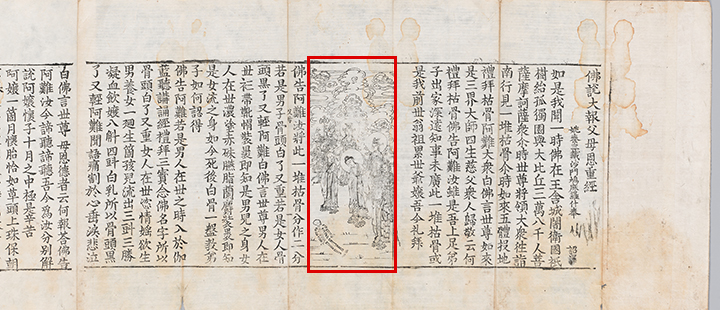 佛說大報父母恩重經
姚秦三藏沙門鳩摩羅什奉 詔譯
如是我聞一時佛在王舍城闍衛國祇
樹給孤獨園與大比丘三万八千人菩
薩摩訶薩衆尒時世尊將領大衆徃詣
南行見一堆枯骨尒時如來五體投地
禮拜枯骨阿難大衆白佛言世尊如來
是三界大師四生慈父衆人歸敬云何
禮拜枯骨佛告阿難汝雖是吾上足弟
子出家深遠知事未廣此一堆枯骨或
是我前世翁祖累世爺孃吾今禮拜
佛告阿難汝將此一堆枯骨分作二分
若是男子骨頭白了又重若是女人骨
頭黑了又輕阿難白佛言世尊男人在
世衫帶靴帽裝裹即知是男兒之身女
人在世濃塗赤硃臙脂蘭麝裝裹即知
是女流之身如今死後白骨一般敎弟
子如何認得
佛告阿難若是男人在世之時入於伽
藍聽講誦經禮拜三寶念佛名字所以
骨頭白了又重女人在世恣情婬欲生
男養女一廻生箇孩兒流出三㪷三勝
凝血飮孃八斛四㪷白乳所以骨頭黑
了又輕阿難聞語痛割於心垂淚悲泣
白佛言世尊母恩德者云何報答佛告
阿難汝今諦聽諦聽吾今爲汝分別解
說阿孃懷子十月之中極是辛苦
阿孃一箇月懷胎恰如草頭上珠保朝